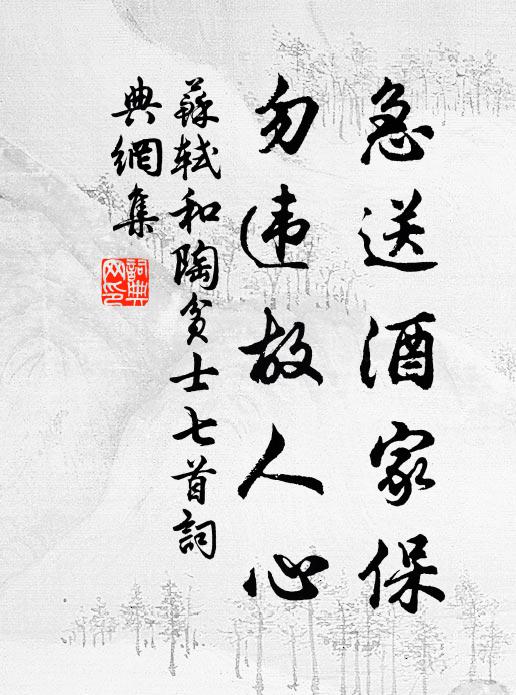 急送酒家保
勿违故人心
蘇軾和陶贫士七首詞
典網集
詞典
网印